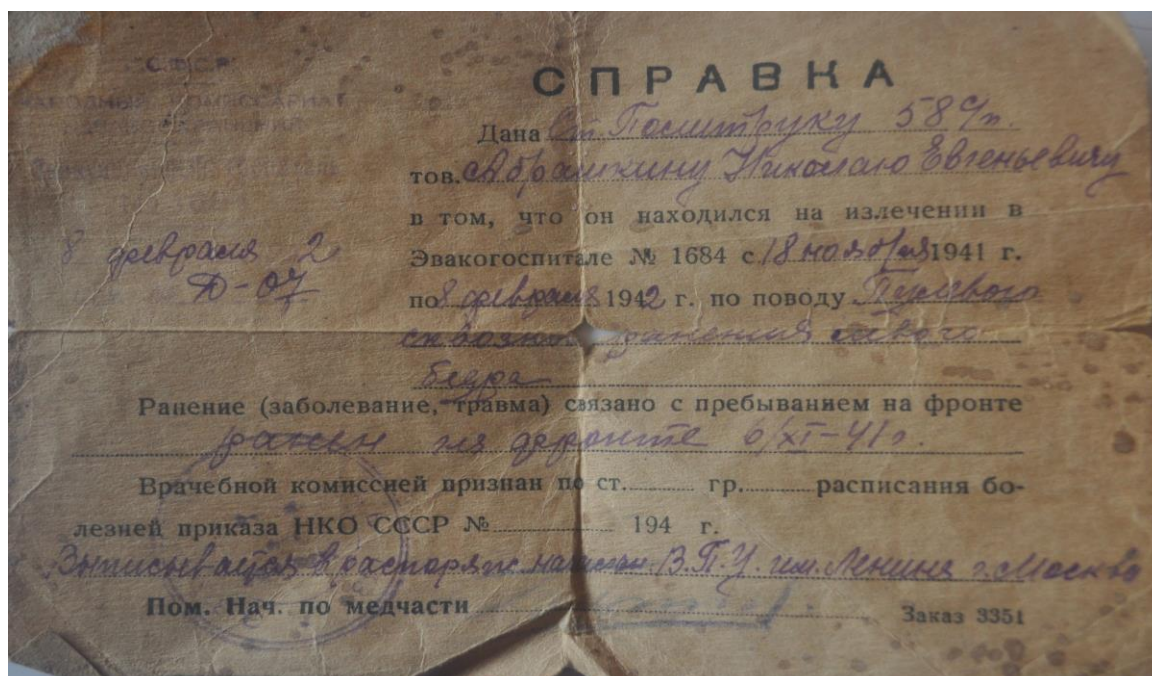 СССР
НАРОДНЫЙ КОМИССАРИАТ
8 февраля 2
Д-07
СПРАВКА
Дана Ст. Политруку 589п.
тов. Абрамкину Николаю Евгеньевичу
в том, что он находился на излечении в
Эвакогоспитале № 1684 с 18 ноября 1941 г.
по 8 февраля 1942 г. по поводу Пулевого
сквозного ранения левого
бедра
Ранение (заболевание, травма) связано с пребыванием на фронте
ранен на фронте 6/XI-41г.
Врачебной комиссией признан по ст. гр. расписания бо-
лезней приказа НКО СССР № 194 г.
Выписывается в распоряж. В.П.У. им. Ленина г. Москва
Пом. Нач. по медчасти
Заказ 3351